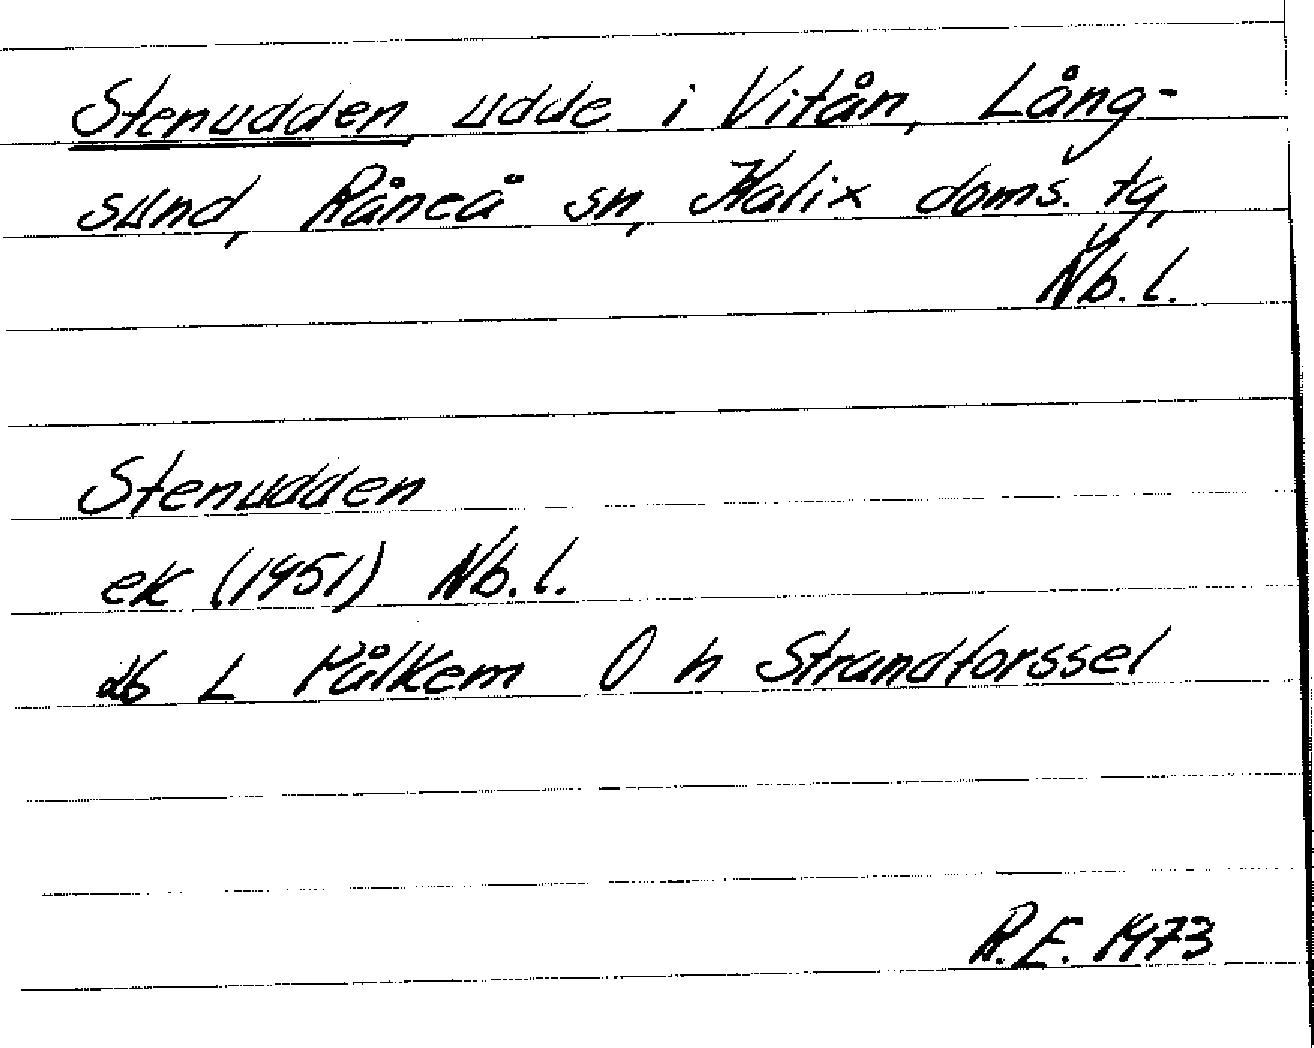 Stenudden, udde i Vitån, Lång-
sund, Råneå sn, Kalix doms. tg,
Nb. l.
Stenudden
ek (1951) Nb. l.
db L Pålkem O h Strandforssel
R.E. 1973